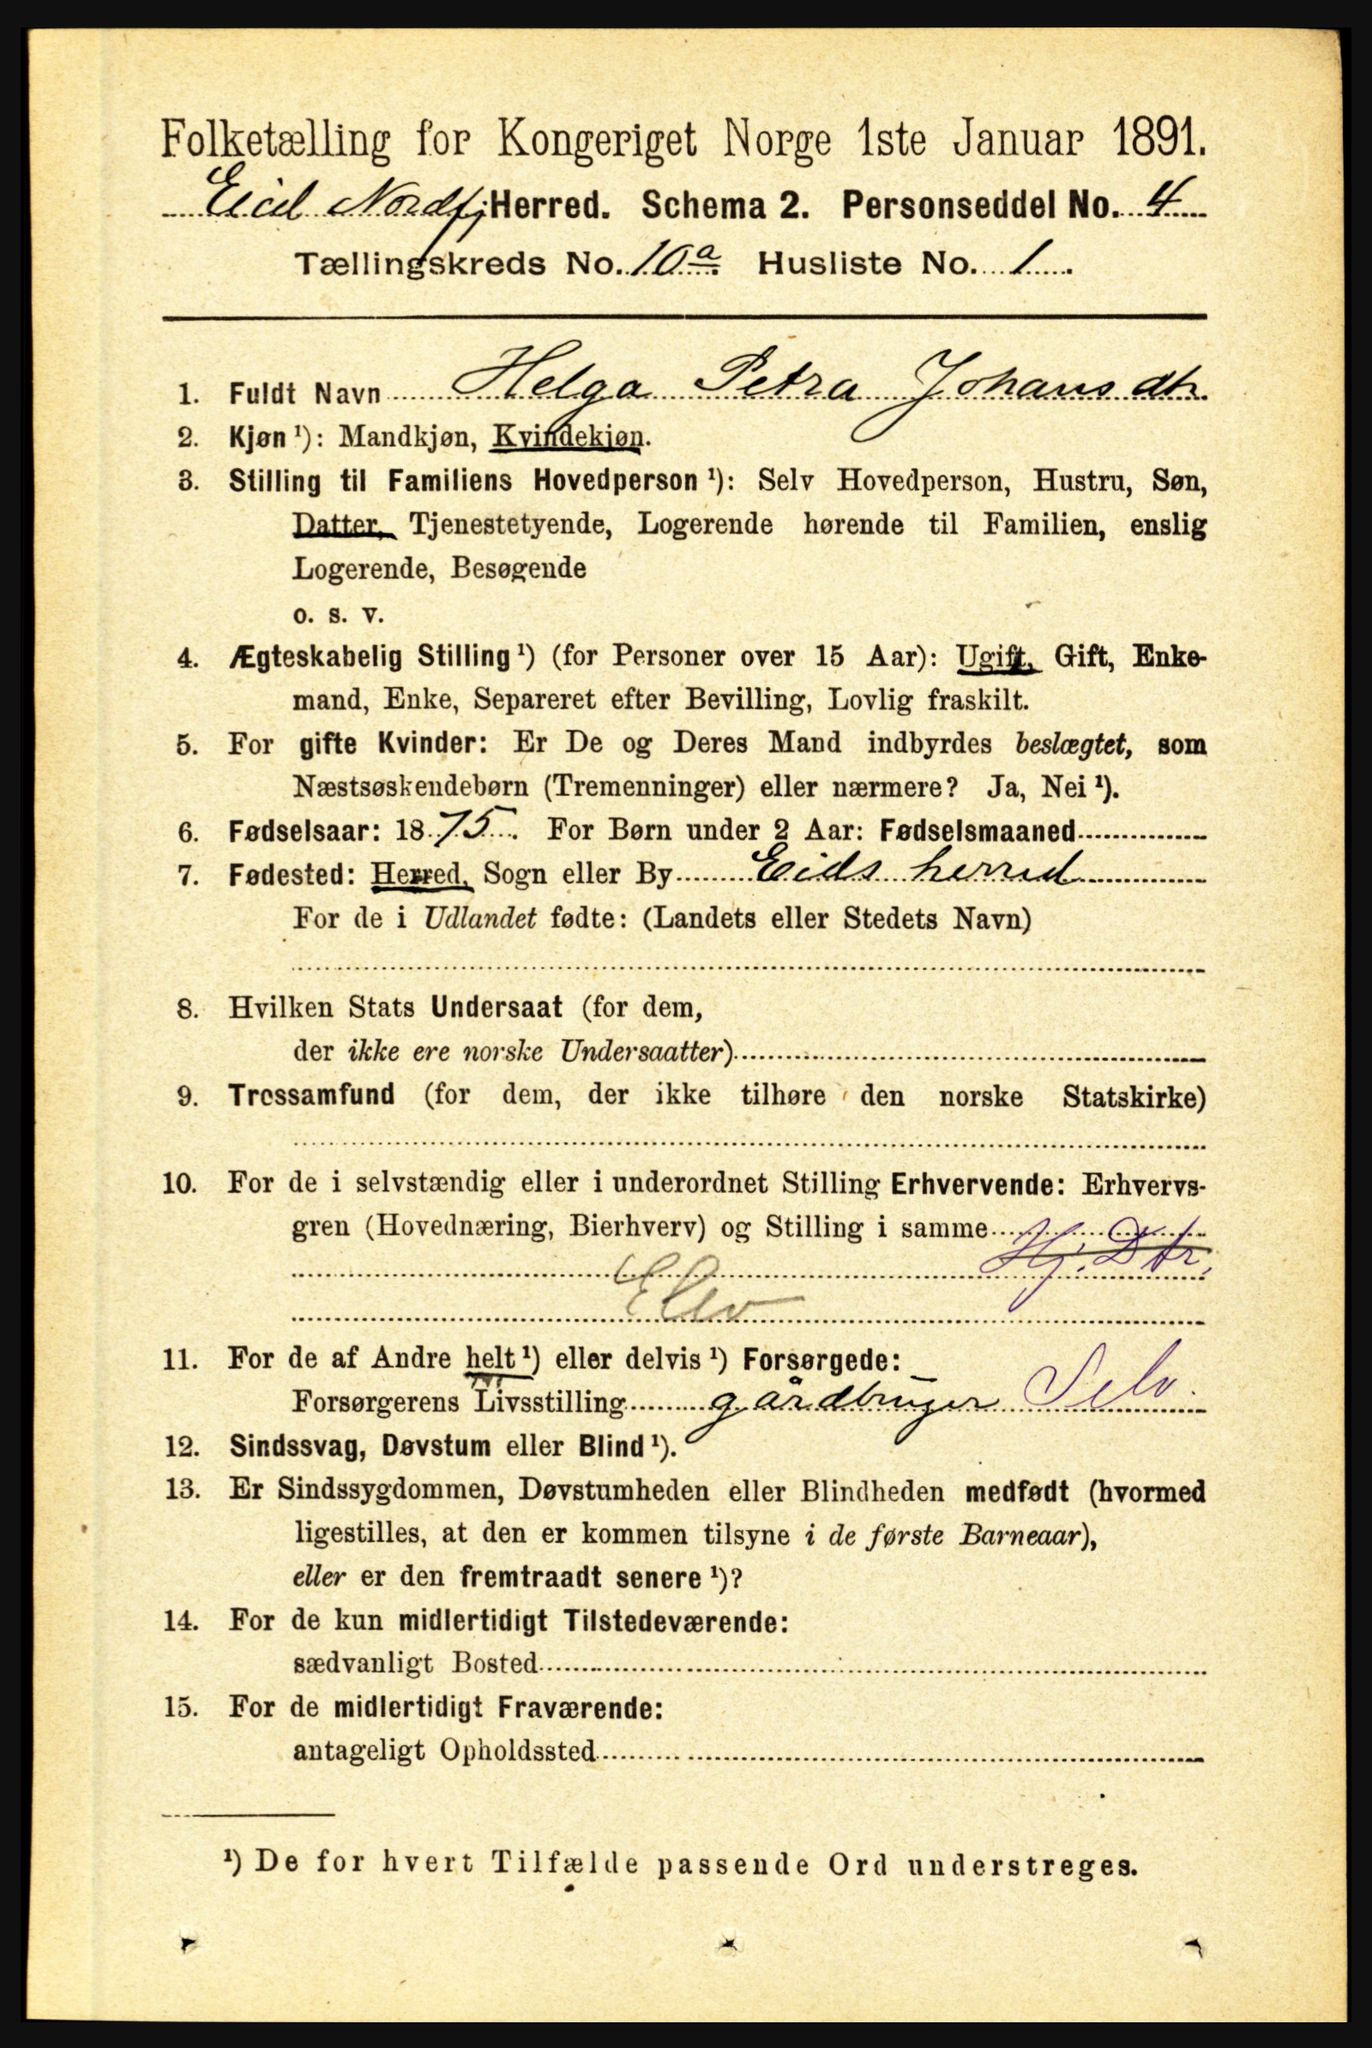 Folketælling for Kongeriget Norge 1ste Januar 1891.
Eid Nordfj Herred. Schema 2. Personseddel No. 4
Tællingskreds No. 10a Husliste No. 1
1. Fuldt Navn Helga Petra Johansdtr.
2. Kjøn ¹): Mandkjøn, Kvindekjøn.
3. Stilling til Familiens Hovedperson ¹): Selv Hovedperson, Hustru, Søn,
Datter, Tjenestetyende, Logerende hørende til Familien, enslig
Logerende, Besøgende
o. s. v.
4. Ægteskabelig Stilling ¹) (for Personer over 15 Aar): Ugift, Gift, Enke-
mand, Enke, Separeret efter Bevilling, Lovlig fraskilt.
5. For gifte Kvinder: Er De og Deres Mand indbyrdes beslægtet, som
Næstsøskendebørn (Tremenninger) eller nærmere? Ja, Nei ¹).
6. Fødselsaar: 1875. For Børn under 2 Aar: Fødselsmaaned
7. Fødested: Herred, Sogn eller By Eids herred
For de i Udlandet fødte: (Landets eller Stedets Navn)
8. Hvilken Stats Undersaat (for dem,
der ikke ere norske Undersaatter)
9. Trossamfund (for dem, der ikke tilhøre den norske Statskirke)
10. For de i selvstændig eller i underordnet Stilling Erhvervende: Erhvervs-
gren (Hovednæring, Bierhverv) og Stilling i samme
Hj. Dtr.
Elev
11. For de af Andre helt ¹) eller delvis ¹) Forsørgede:
Forsørgerens Livsstilling gårdbruger Selv.
12. Sindssvag, Døvstum eller Blind ¹).
13. Er Sindssygdommen, Døvstumheden eller Blindheden medfødt (hvormed
ligestilles, at den er kommen tilsyne i de første Barneaar),
eller er den fremtraadt senere ¹)?
14. For de kun midlertidigt Tilstedeværende:
sædvanligt Bosted
15. For de midlertidigt Fraværende:
antageligt Opholdssted
¹) De for hvert Tilfælde passende Ord understreges.